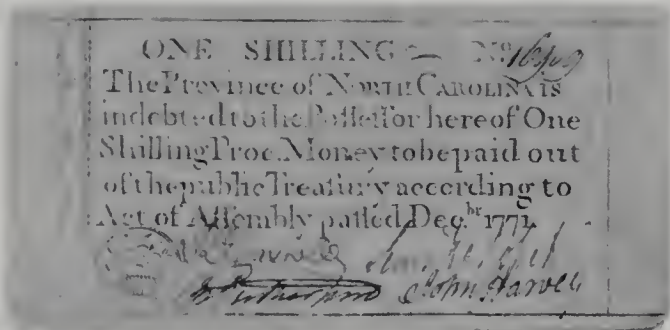 ONE SHILLING No
The Province of NORTH CAROLINA is
indebted to the Poſſeſſor hereof One
Shilling Proc. Money to be paid out
of the public Treaſury according to
Act of Aſſembly paſſed Dec.br 1771
John Harvey